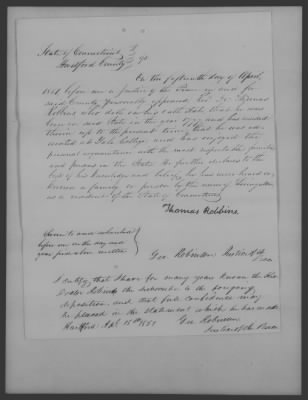 State of Connecticut
Hartford County ss
On the fifteenth day of April,
1851 before me a Justice of the Peace in and for
said County, personally appeared Rev. Dr. Thomas
Robbins who doth on his oath state that he was
born in said State in the year 1777, and has resided
therein up to the present time; that he was edu-
cated at Yale College and has enjoyed the
personal acquaintance with the most respectable families
and persons in the State. He further declares to the
best of his knowledge and belief, he has never heard or
known a family or person by the name of
as a resident of the State of Connecticut
Thomas Robbins.
Sworn to and subscribed
before me on the day and
year first above written
Geo Robinson Justice of the
Peace
I certify, that I have for many years known the Rev
Doctor Robbins the subscriber to the foregoing
deposition and that full confidence may
be placed in the statement which he has made.
Hartford Apl 15th 1851 Geo Robinson
Justice of the Peace